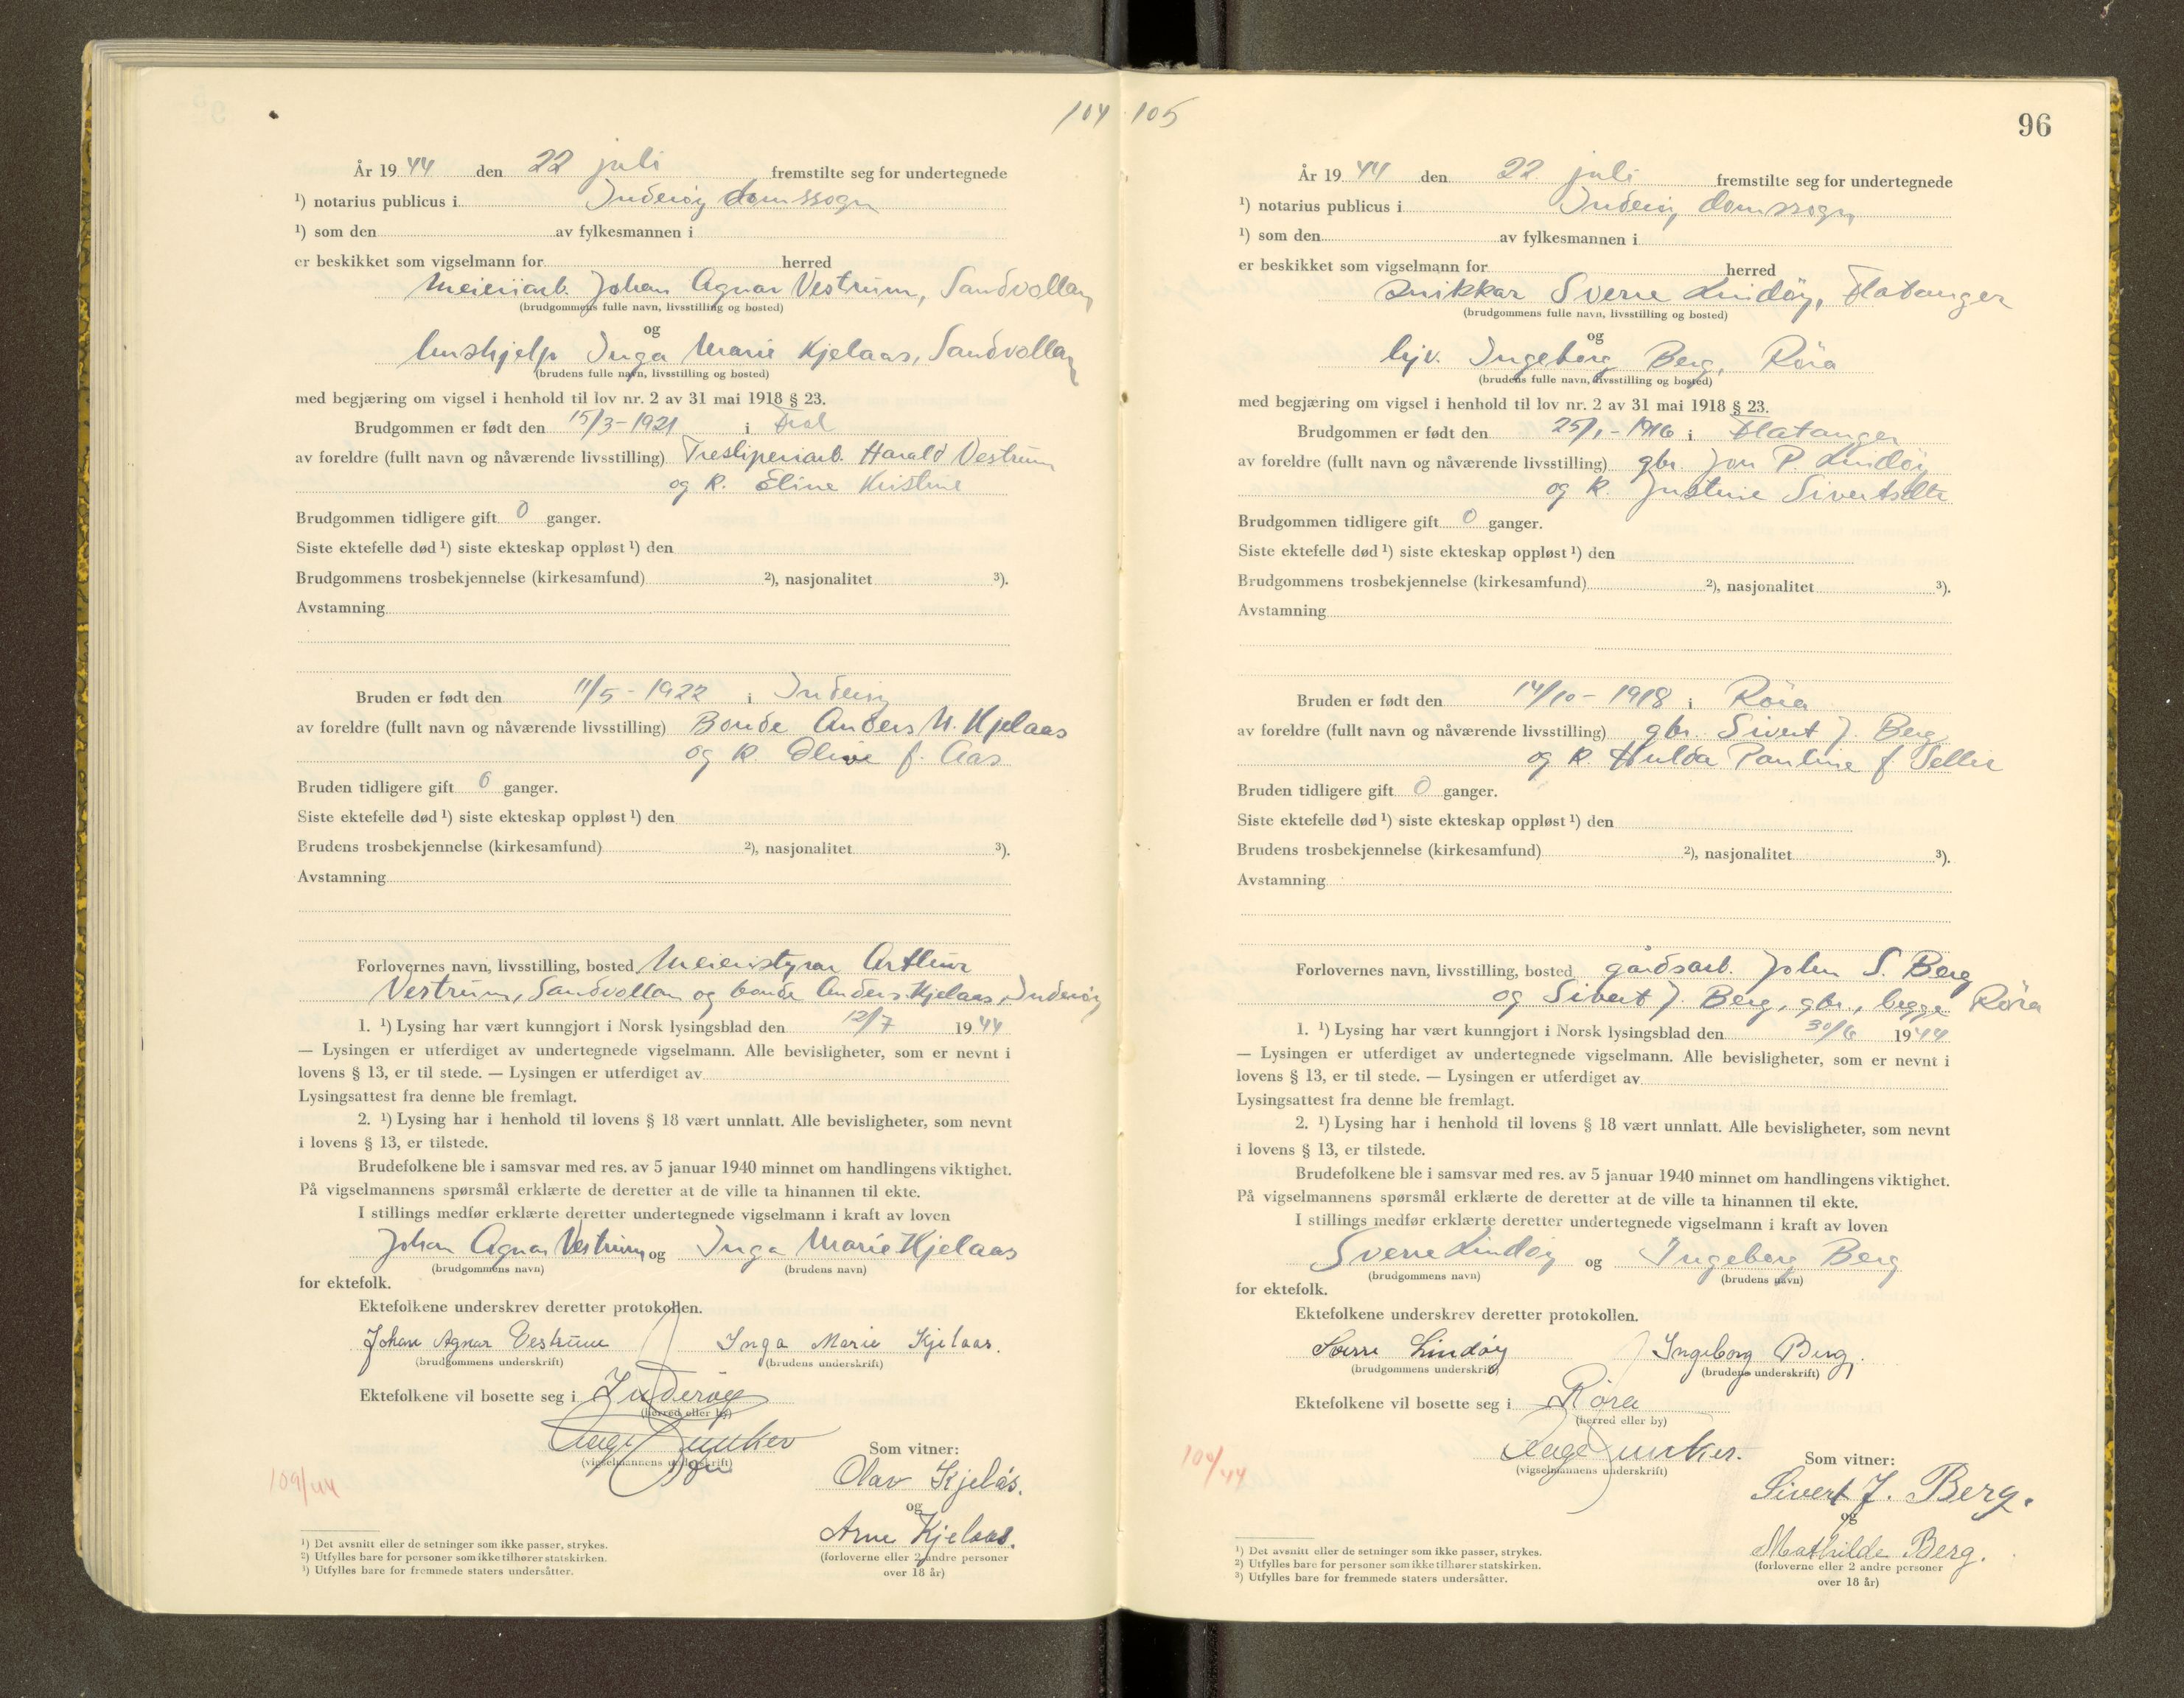 104
År 1944 den 22 juli fremstilte seg for undertegnede
¹) notarius publicus i Inderøy domssogn
¹) som den av fylkesmannen i
er beskikket som vigselmann for herred
Meieriarb. Johan Agnar Vestrum, Sandvollan
(brudgommens fulle navn, livsstilling og bosted)
og
hushjelp Inga Marie Kjelaas, Sandvollan
(brudens fulle navn, livsstilling og bosted)
med begjæring om vigsel i henhold til lov nr. 2 av 31 mai 1918 § 23.
Brudgommen er født den 15/3-1921 i
av foreldre (fullt navn og nåværende livsstilling) Tresliperiarb. Harald Vestrum
og k. Eline Kristine
Brudgommen tidligere gift 0 ganger.
Siste ektefelle død ¹) siste ekteskap oppløst ¹) den
Brudgommens trosbekjennelse (kirkesamfund) ²), nasjonalitet ³).
Avstamning
Bruden er født den 11/5-1922 i Inderøy
av foreldre (fullt navn og nåværende livsstilling) Bonde Anders M. Kjelaas
og k. Olive f. Aas
Bruden tidligere gift 0 ganger.
Siste ektefelle død ¹) siste ekteskap oppløst ¹) den
Brudens trosbekjennelse (kirkesamfund) ²), nasjonalitet ³).
Avstamning
Forlovernes navn, livsstilling, bosted Meieristyrar Arthur
Vestrum, Sandvollan og bonde Anders Kjelaas, Inderøy
1. ¹) Lysing har vært kunngjort i Norsk lysingsblad den 12/7 1944
— Lysingen er utferdiget av undertegnede vigselmann. Alle bevisligheter, som er nevnt i
lovens § 13, er til stede. — Lysingen er utferdiget av
Lysingsattest fra denne ble fremlagt.
2. ¹) Lysing har i henhold til lovens § 18 vært unnlatt. Alle bevisligheter, som nevnt
i lovens § 13, er tilstede.
Brudefolkene ble i samsvar med res. av 5 januar 1940 minnet om handlingens viktighet.
På vigselmannens spørsmål erklærte de deretter at de ville ta hinannen til ekte.
I stillings medfør erklærte deretter undertegnede vigselmann i kraft av loven
Johan Agnar Vestrum og Inga Marie Kjelaas
(brudgommens navn) (brudens navn)
for ektefolk.
Ektefolkene underskrev deretter protokollen.
Johan Agnar Vestrum Inga Marie Kjelaas.
(brudgommens underskrift) (brudens underskrift)
Ektefolkene vil bosette seg i Inderøy
(herred eller by)
Aage Junker
(vigselmannens underskrift)
Som vitner:
109/44
Olav Kjelås.
og
Arne Kjelaas.
(forloverne eller 2 andre personer
over 18 år)
¹) Det avsnitt eller de setninger som ikke passer, strykes.
²) Utfylles bare for personer som ikke tilhører statskirken.
³) Utfylles bare for fremmede staters undersåtter.
105
96
År 1944 den 22 juli fremstilte seg for undertegnede
¹) notarius publicus i Inderøy domssogn
¹) som den av fylkesmannen i
er beskikket som vigselmann for herred
Snikkar Sverre Lindøy, Flatanger
(brudgommens fulle navn, livsstilling og bosted)
og
hjv. Ingeborg Berg, Röra
(brudens fulle navn, livsstilling og bosted)
med begjæring om vigsel i henhold til lov nr. 2 av 31 mai 1918 § 23.
Brudgommen er født den 25/1-1916 i Flatanger
av foreldre (fullt navn og nåværende livsstilling) gbr. Jon P. Lindøy
og k. Justine
Brudgommen tidligere gift 0 ganger.
Siste ektefelle død ¹) siste ekteskap oppløst ¹) den
Brudgommens trosbekjennelse (kirkesamfund) ²), nasjonalitet ³).
Avstamning
Bruden er født den 14/10-1918 i Röra
av foreldre (fullt navn og nåværende livsstilling) gbr. Sivert J. Berg
og k. Hulda Pauline f.
Bruden tidligere gift 0 ganger.
Siste ektefelle død ¹) siste ekteskap oppløst ¹) den
Brudens trosbekjennelse (kirkesamfund) ²), nasjonalitet ³).
Avstamning
Forlovernes navn, livsstilling, bosted gårdsarb. John S. Berg
og Sivert J. Berg, gbr., begge Röra
1. ¹) Lysing har vært kunngjort i Norsk lysingsblad den 30/6 1944
— Lysingen er utferdiget av undertegnede vigselmann. Alle bevisligheter, som er nevnt i
lovens § 13, er til stede. — Lysingen er utferdiget av
Lysingsattest fra denne ble fremlagt.
2. ¹) Lysing har i henhold til lovens § 18 vært unnlatt. Alle bevisligheter, som nevnt
i lovens § 13, er tilstede.
Brudefolkene ble i samsvar med res. av 5 januar 1940 minnet om handlingens viktighet.
På vigselmannens spørsmål erklærte de deretter at de ville ta hinannen til ekte.
I stillings medfør erklærte deretter undertegnede vigselmann i kraft av loven
Sverre Lindøy og Ingeborg Berg
(brudgommens navn) (brudens navn)
for ektefolk.
Ektefolkene underskrev deretter protokollen.
Sverre Lindøy Ingeborg Berg.
(brudgommens underskrift) (brudens underskrift)
Ektefolkene vil bosette seg i Röra
(herred eller by)
Aage Junker.
(vigselmannens underskrift)
Som vitner:
Sivert J. Berg.
og
Mathilde Berg.
(forloverne eller 2 andre personer
over 18 år)
¹) Det avsnitt eller de setninger som ikke passer, strykes.
²) Utfylles bare for personer som ikke tilhører statskirken.
³) Utfylles bare for fremmede staters undersåtter.